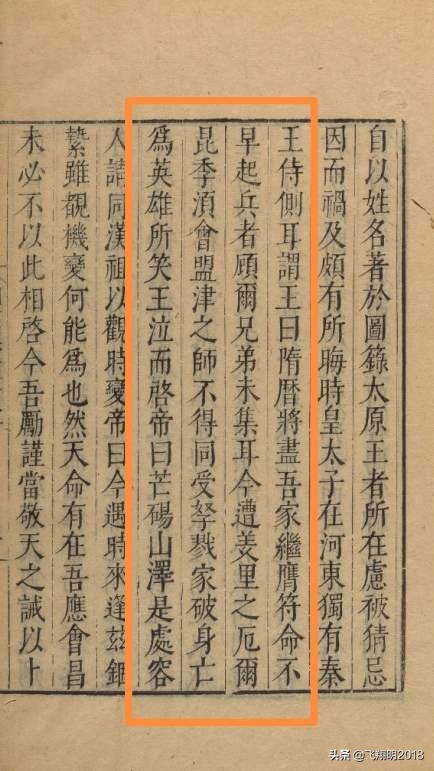 自以姓名著於圖籙太原王者所在慮被猜忌
因而禍及頗有所晦時皇太子在河東獨有秦
王侍側耳謂王曰隋曆將盡吾家繼膺符命不
早起兵者顧爾兄弟未集耳今遭羑里之厄爾
昆季須會盟津之師不得同受孥戮家破身亡
為英雄所笑王泣而啓帝曰芒碭山澤是處容
人請同漢祖以觀時變帝曰今遇時來逢玆錮
縶雖覩機變何能為也然天命有在吾應會昌
未必不以此相啓今吾勵謹當敬天之誡以卜
头条 @飞翔明2018